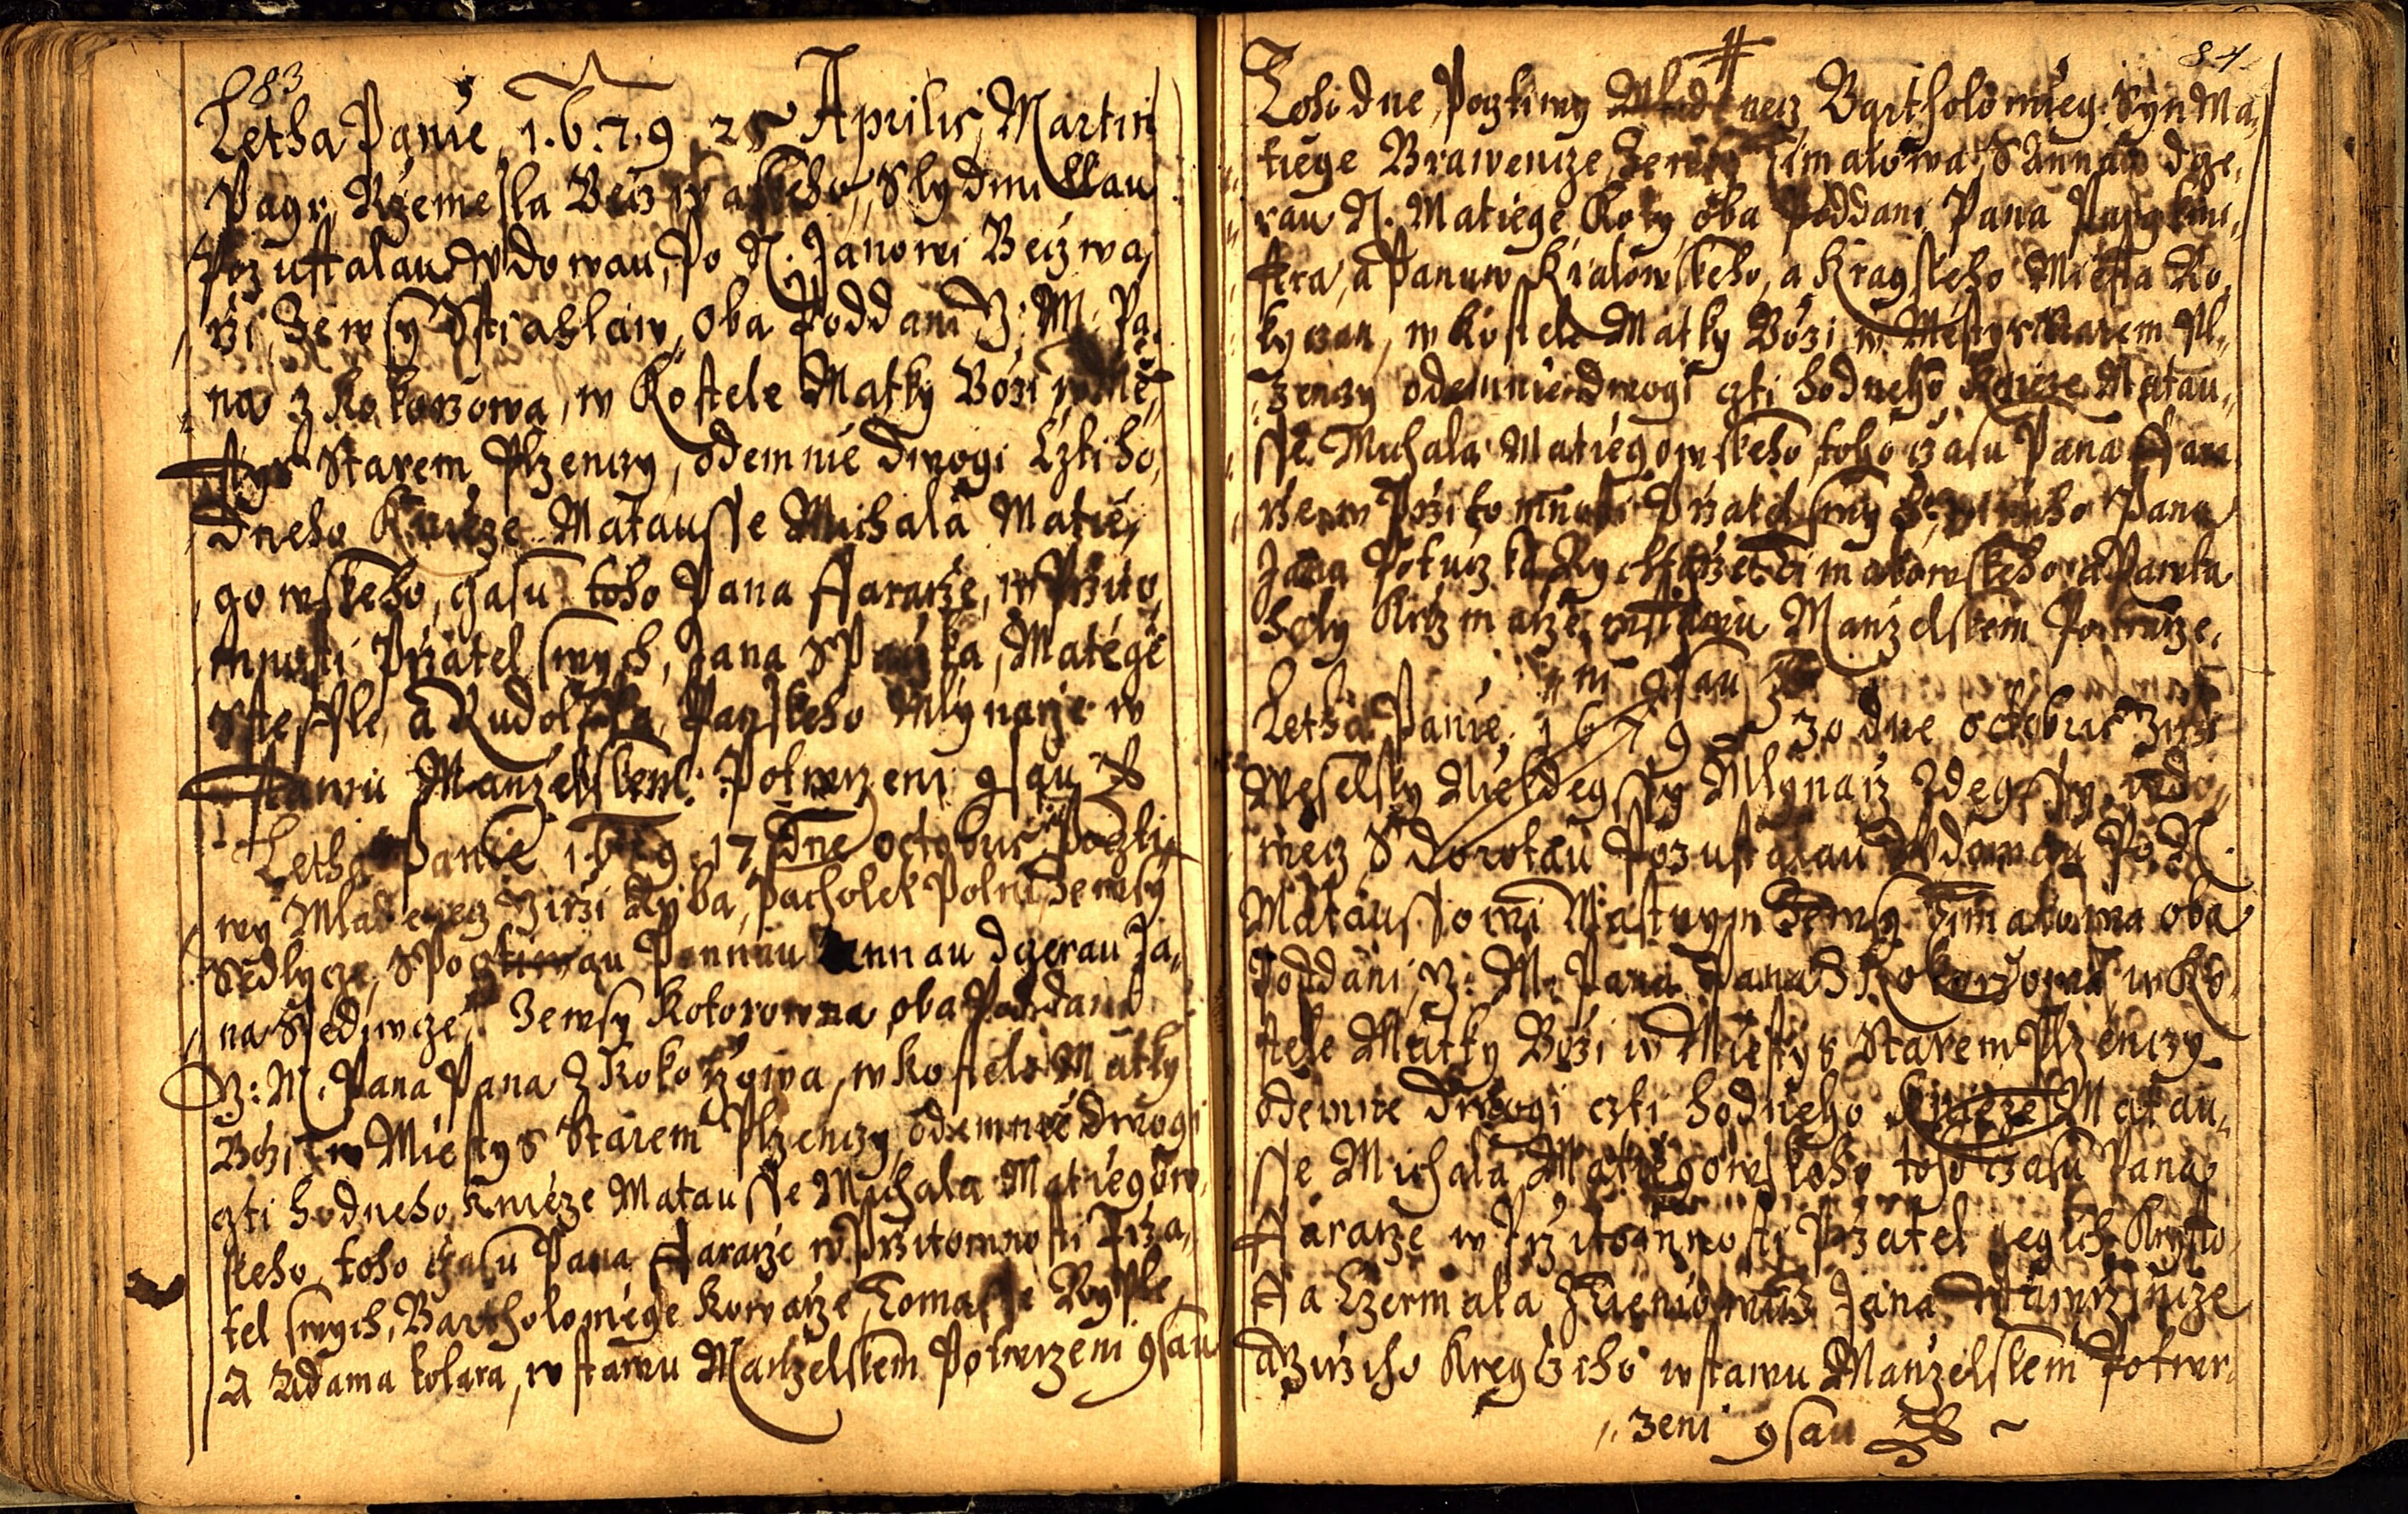 83
Letha Panie 1.6.7.9. 25 Aprilis, Martin
Payr, Rzemesla Beczwarskeho, S Lydmillau
Pozustalau Wdowau, Po N. Janowi Beczwa,
rzi, Zewsy Strahlaw, oba Poddani J: M. Pa,
na z Kokorzowa, w Kostele Matky Bozi w Mě,
stys Starem Plzenczy, odemnie dwogi Czti ho,
dneho Knieze Matausse Michala Matie,
gowskeho, czasu toho Pana Fararze, w Przito,
mnosti Przatel swych, Jana Matěge
a Rudolffa, Panskeho Mlynarze w
stawu Manzelskem Potwrzeni gsau
Letha Panie 1679 17 Dne octobris Poczti,
wy Mladenecz Jirzi Ryba, Pacholek Polni Zewsy
Sedlycze, S Pocztiwau Pannau Annau dczerau Ja,
na Zewsy Kotorowna oba Poddani
J: M. Pana Pana Z Kokorzowa, w kostele Matky
Bozi w Miestys Starem Plzenczy, odemnie dwogi
czti hodneho knieze Matausse Michala Matiegow,
skeho toho czasu Pana Fararze w Przitomnosti Prza,
tel swych, Bartholomiege Kowarze, Tomasse
A Adama kolara, w stawu Manzelskem Potwrzeni gsau
84
Toho dne, Pocztiwy Mladenecz Bartholomieg Syn Ma,
tiege Brawencze Zewsy Timakowa, S Annau dcze,
rau N. Matiege Koky oba Poddani Pana Purgkmi,
stra, a Panuw Kralowskeho, a Kragskeho Miesta Ro,
kyczan, w Kostele Matky Bozi w Městys Starem Pl,
zenczy odemnie dwogi czti hodneho Knieze Matau,
sse Michala Matiegowskeho, toho czasu Pana Fara
rze, w Przitomnosti Przatel swych, Pana
Jana Rychtarze Timakowskeho a Pawla
w stawu Manzelskem Potwrze,
ni gsau
Letha Panie 1679 30 dne octobris Jirzi
Weselsky Niekdegssy Mlynarz Zdegssy, wdo,
wecz S dorotau Pozustalau Wdowau Po N.
Mataussowi Zewsy Timakowa oba
Poddani, J: M. Pana Pana Z Kokorzowa, w Ko,
stele Matky Bozi w Miestys Starem Plzenczy
odemne dwogi czti hodneho Knieze Matau,
sse Michala Matiegowskeho toho czasu Pana
Fararze w Przitomnosti Przatel gegich Krysto,
fa Czermaka Jana Wawrzincze
a Jirziho Kregcziho w stawu Manzelskem Potwr,
zeni gsau